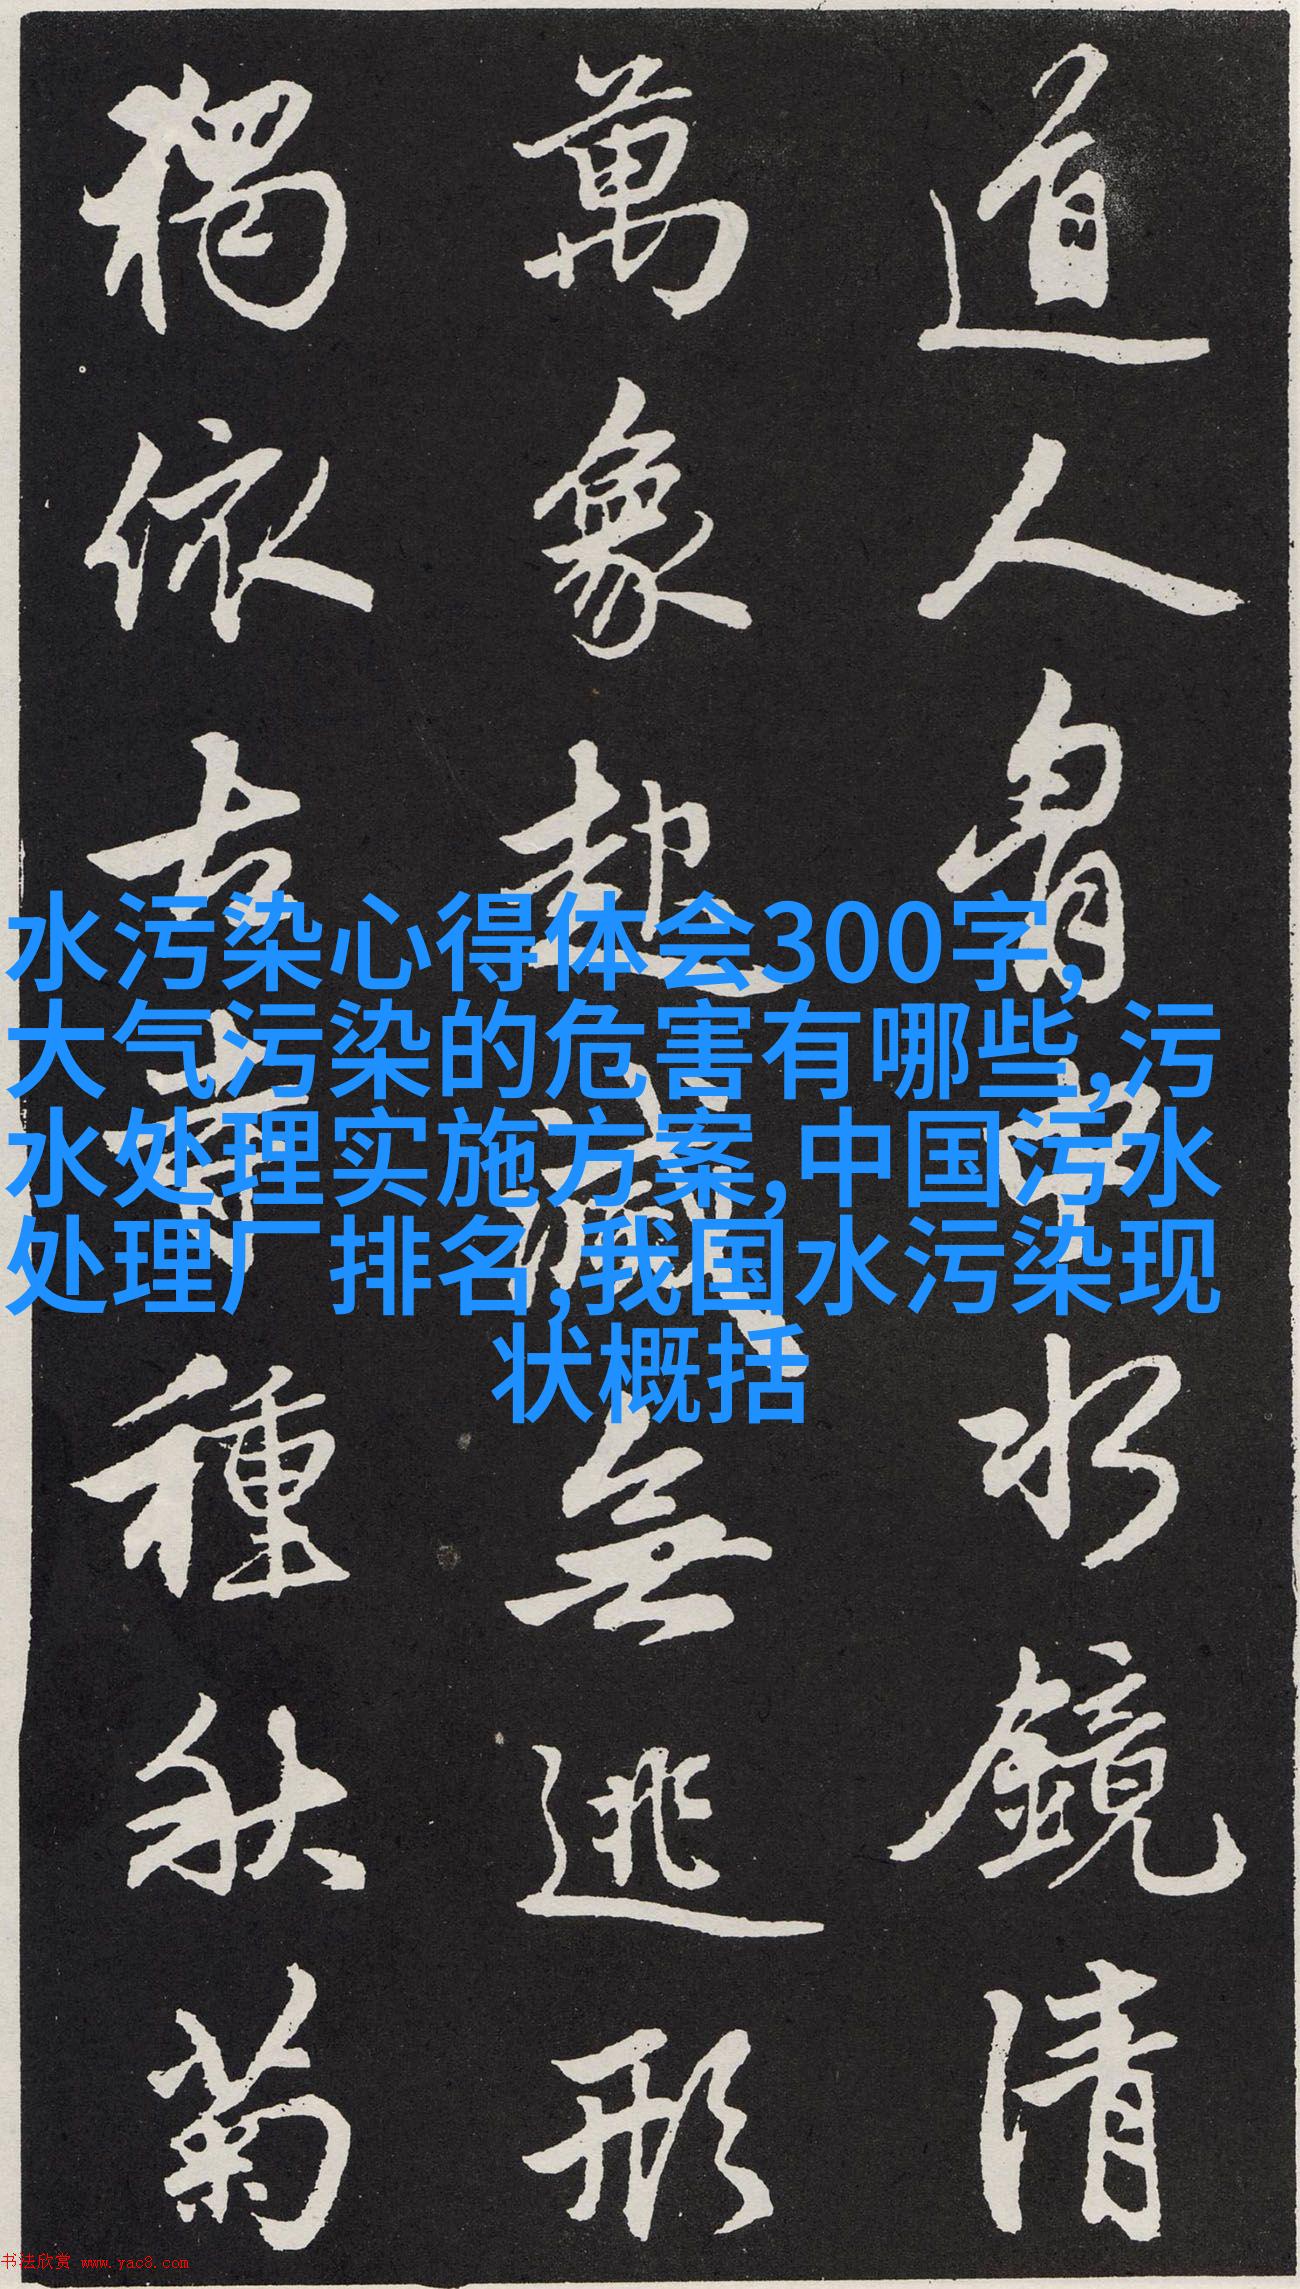 道人胷中水鏡清
萬象起滅無逃形
獨依古寺種秋菊
水污染心得体会300字,
大气污染的危害有哪些,污
水处理实施方案,中国污水
处理厂排名,我国水污染现
状概括
书法欣赏 www.yac8.com